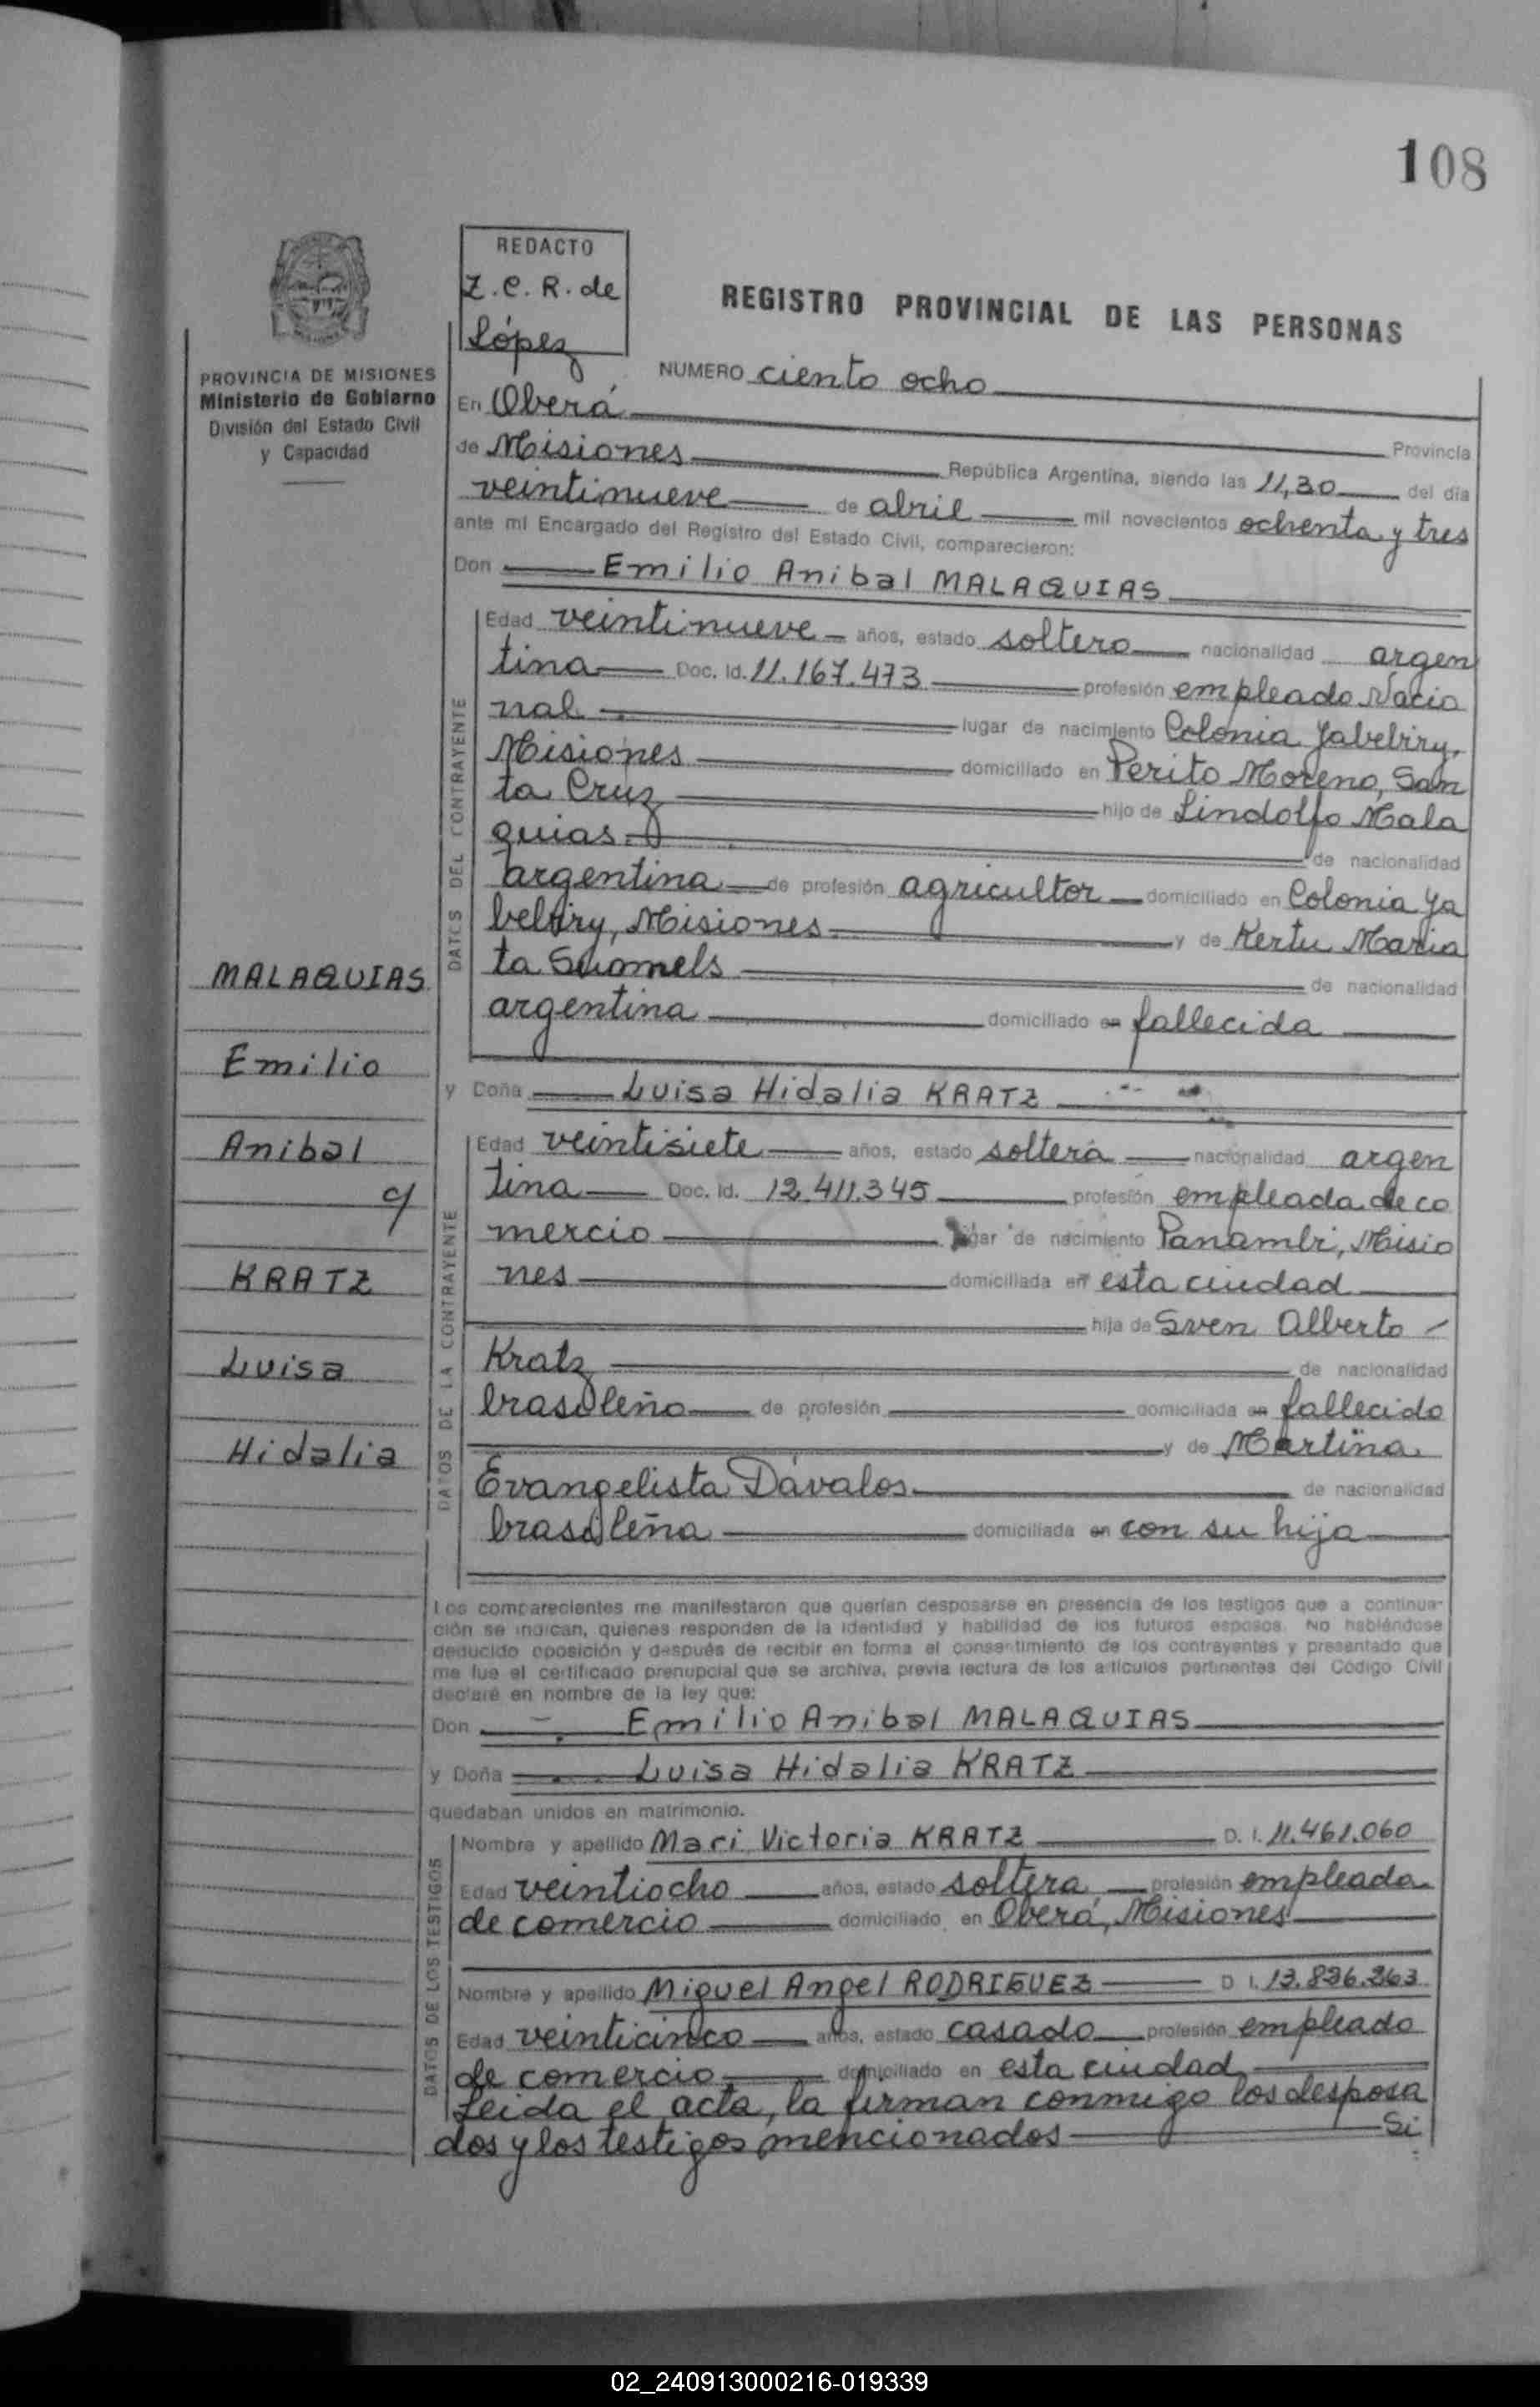 108
REDACTO
Z. C. R. de
López
REGISTRO PROVINCIAL DE LAS PERSONAS
PROVINCIA DE MISIONES
Ministerio de Gobierno
División del Estado Civil
y Capacidad
NUMERO ciento ocho
En Oberá
Provincia
de Misiones República Argentina, siendo las 11,30 del día
veintinueve de abril mil novecientos ochenta y tres
ante mí Encargado del Registro del Estado Civil, comparecieron:
Don Emilio Anibal MALAQUIAS
DATOS DEL CONTRAYENTE
Edad veintinueve años, estado soltero nacionalidad argen
tina Doc. Id. 11.167.473 profesión empleado Nacio
nal lugar de nacimiento Colonia Yabebiry,
Misiones domiciliado en Perito Moreno, San
ta Cruz hijo de Lindolfo Mala
quias de nacionalidad
argentina de profesión agricultor domiciliado en Colonia Ya
bebiry, Misiones y de Kertu Maria
ta de nacionalidad
argentina domiciliado en fallecida
MALAQUIAS
Emilio
Anibal
c/
KRATZ
Luisa
Hidalia
y Doña Luisa Hidalia KRATZ
DATOS DE LA CONTRAYENTE
Edad veintisiete años, estado soltera nacionalidad argen
tina Doc. Id. 12.411.345 profesión empleada de co
mercio lugar de nacimiento Panambi, Misio
nes domiciliada en esta ciudad
hija de Sven Alberto
Kratz de nacionalidad
brasileño de profesión domiciliada en fallecido
y de Martina
Evangelista Dávalos de nacionalidad
brasileña domiciliada en con su hija
Los comparecientes me manifestaron que querían desposarse en presencia de los testigos que a continua-
ción se indican, quienes responden de la identidad y habilidad de los futuros esposos. No habiéndose
deducido oposición y después de recibir en forma el consentimiento de los contrayentes y presentado que
me fue el certificado prenupcial que se archiva, previa lectura de los artículos pertinentes del Código Civil
declaré en nombre de la ley que:
Don Emilio Anibal MALAQUIAS
y Doña Luisa Hidalia KRATZ
quedaban unidos en matrimonio.
DATOS DE LOS TESTIGOS
Nombre y apellido Mari Victoria KRATZ D. I. 11.461.060
Edad veintiocho años, estado soltera profesión empleada
de comercio domiciliado en Oberá, Misiones
Nombre y apellido Miguel Angel RODRIGUEZ D I. 13.836.263
Edad veinticinco años, estado casado profesión empleado
de comercio domiciliado en esta ciudad
Leida el acta, la firman conmigo los desposa
dos y los testigos mencionados Si
02_240913000216-019339